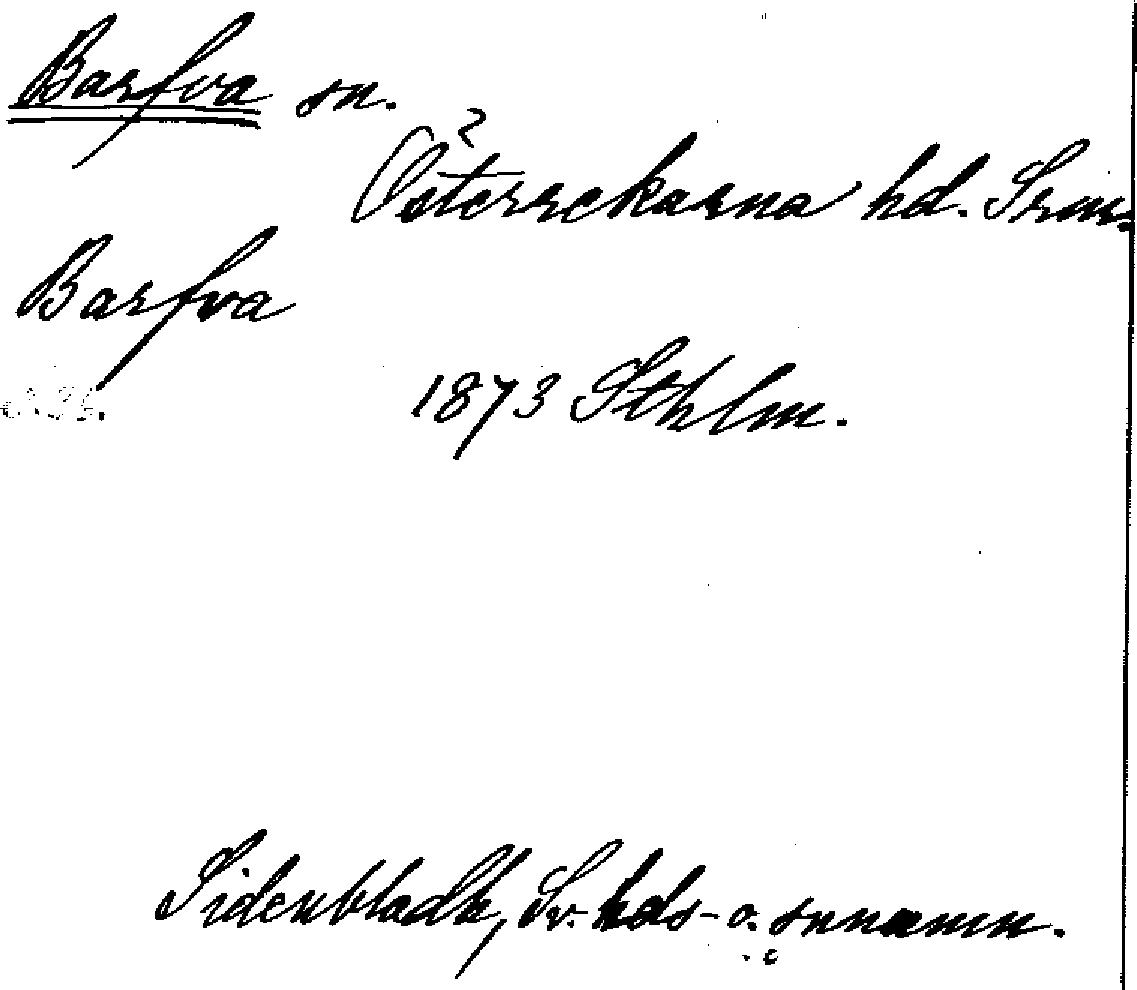 Barfva sn.
Österrekarna hd. Srm.
Barfva
1873 Sthlm.
Sidenbladh, Sv. hds- o. snnamn.